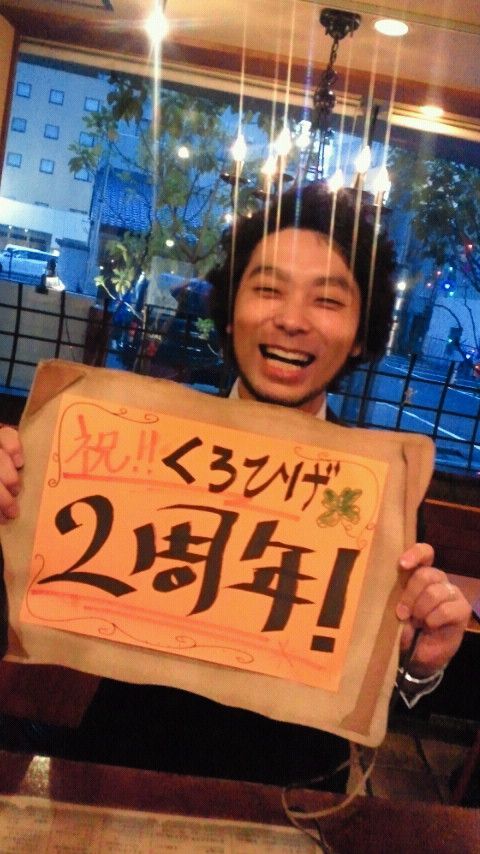 祝!! くろひげ
2周年!